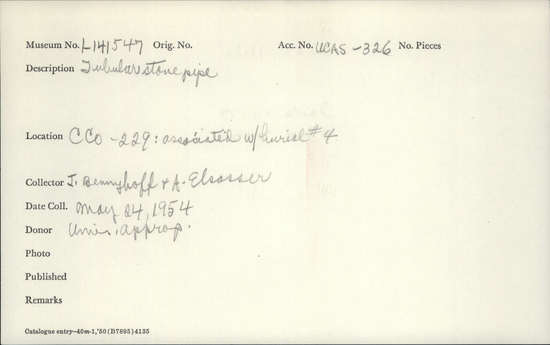 Museum No. L-141547 Orig. No. Acc. No. UCAS-326 No. Pieces
Description Tubular stone pipe
Location CCo-229: associated w/burial #4
Collector J. Bennyhoff + A. Elsasser
Date Coll. May 24, 1954
Donor Univ. approp.
Photo
Published
Remarks
Catalogue entry—40m-1,'50 (B7895) 4135